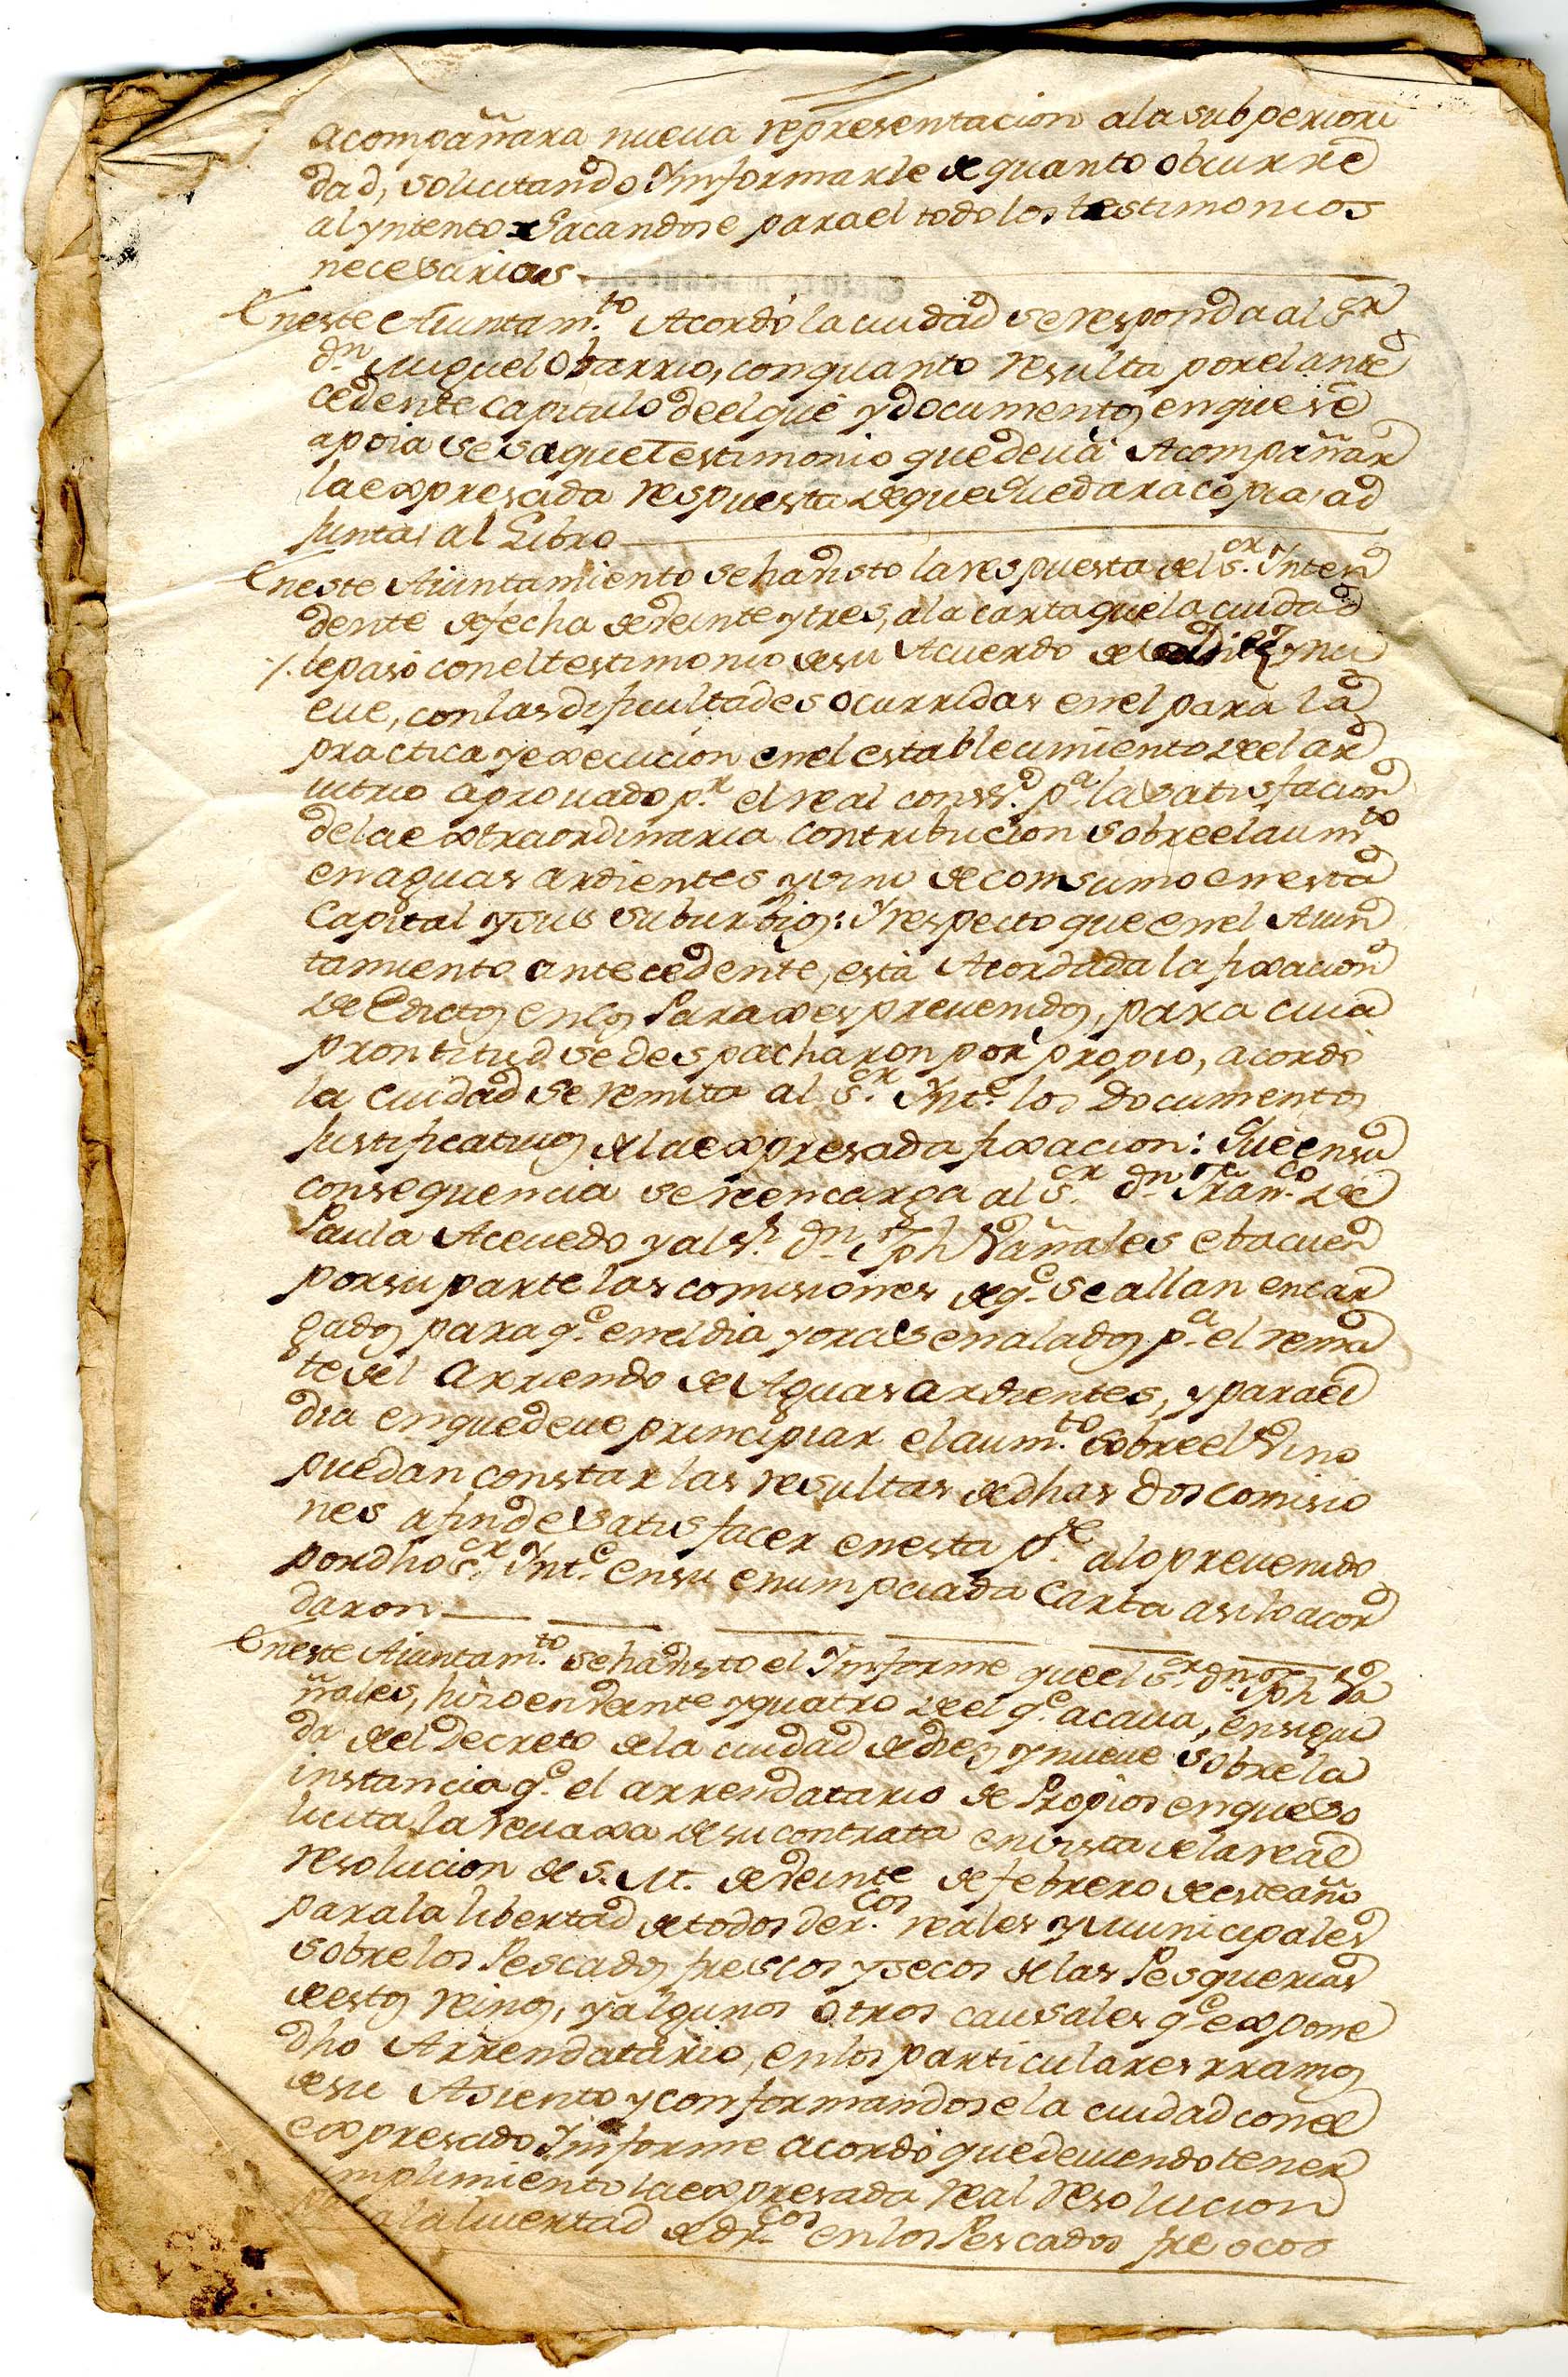 acompañara nueva representacion a la subperiori
dad, solicitando Ynformarle de quanto obcurre
al yntento Sacandose para el todo los testimonios
necesarios
En este Aiuntam.to Acordó la ciudad se responda al Sr
Dn Miguel Obarrio, con quanto resulta por el ante
cedente capitulo de el que y documentos en que se
apoia se saque Testimonio que deua Acompañar
la expresada respuesta de que quedara copia ad
junta al Libro
En este Aiuntamiento se ha visto la respuesta del S.or Inten
dente de fecha de veinte y tres, a la carta que la ciudad
le pasó con el testimonio de su Acuerdo de diez y nu
eue, con las dificultades ocurridas en el para la
practica y execucion en el establecimiento de el ar
uitrio aprouado p.r el real cons.o p.a la satisfacion
de la extraordinaria contribucion sobre el aum.to
en aguas ardientes y vino de comsumo en esta
Capital y sus suburbios: Y respecto que en el Aiun
tamiento antecedente, está Acordada la fixacion
de Edictos en los Paraxes preuenidos, para cuia
prontitud se despacharon por propio, acordó
la ciudad se remita al S.or Ynt.e los Documentos
justificatiuos de la expresada fixacion: Que en su
consequencia se reencarga al S.or Dn Fran.co de
Paula Aceuedo y al S.r Dn Jph Vañales ebacuen
por su parte las comisiones de q.e se allan encar
gados para q.e en el dia y ora señalados p.a el rema
te del Arriendo de Aguas ardientes, y para el
dia en que deue principiar el aum.to sobre el Vino
puedan constar las resultas de dhas dos comisio
nes a fin de satisfacer en esta p.te a lo preuenido
por dho S.or Ynt.e en su enumpciada Carta asi lo acor
daron
En este Aiuntam.to se ha visto el Ynforme que el S.or Dn Jph Va
ñales, hizo en veinte y quatro de el q.e acaua, en segui
da de el Decreto de la ciudad de diez y nueue sobre la
instancia q.e el arrendatario de Propios en que so
licita la reuaxa de su contrata en vista de la real
resolucion de S. M. de veinte de febrero de este año
para la libertad de todos der.cos reales y Municipales
sobre los Pescados frescos y secos de las Pesquerias
de estos reinos, y algunos otros causales q.e expone
dho Arrendatario, en los particulares rramos
de su Asiento y conformandose la ciudad con el
expresado Ynforme acordó que deuiendo tener
mplimiento la expresada Real Resolucion
a la liuertad de dr.cos en los Pescados frescos